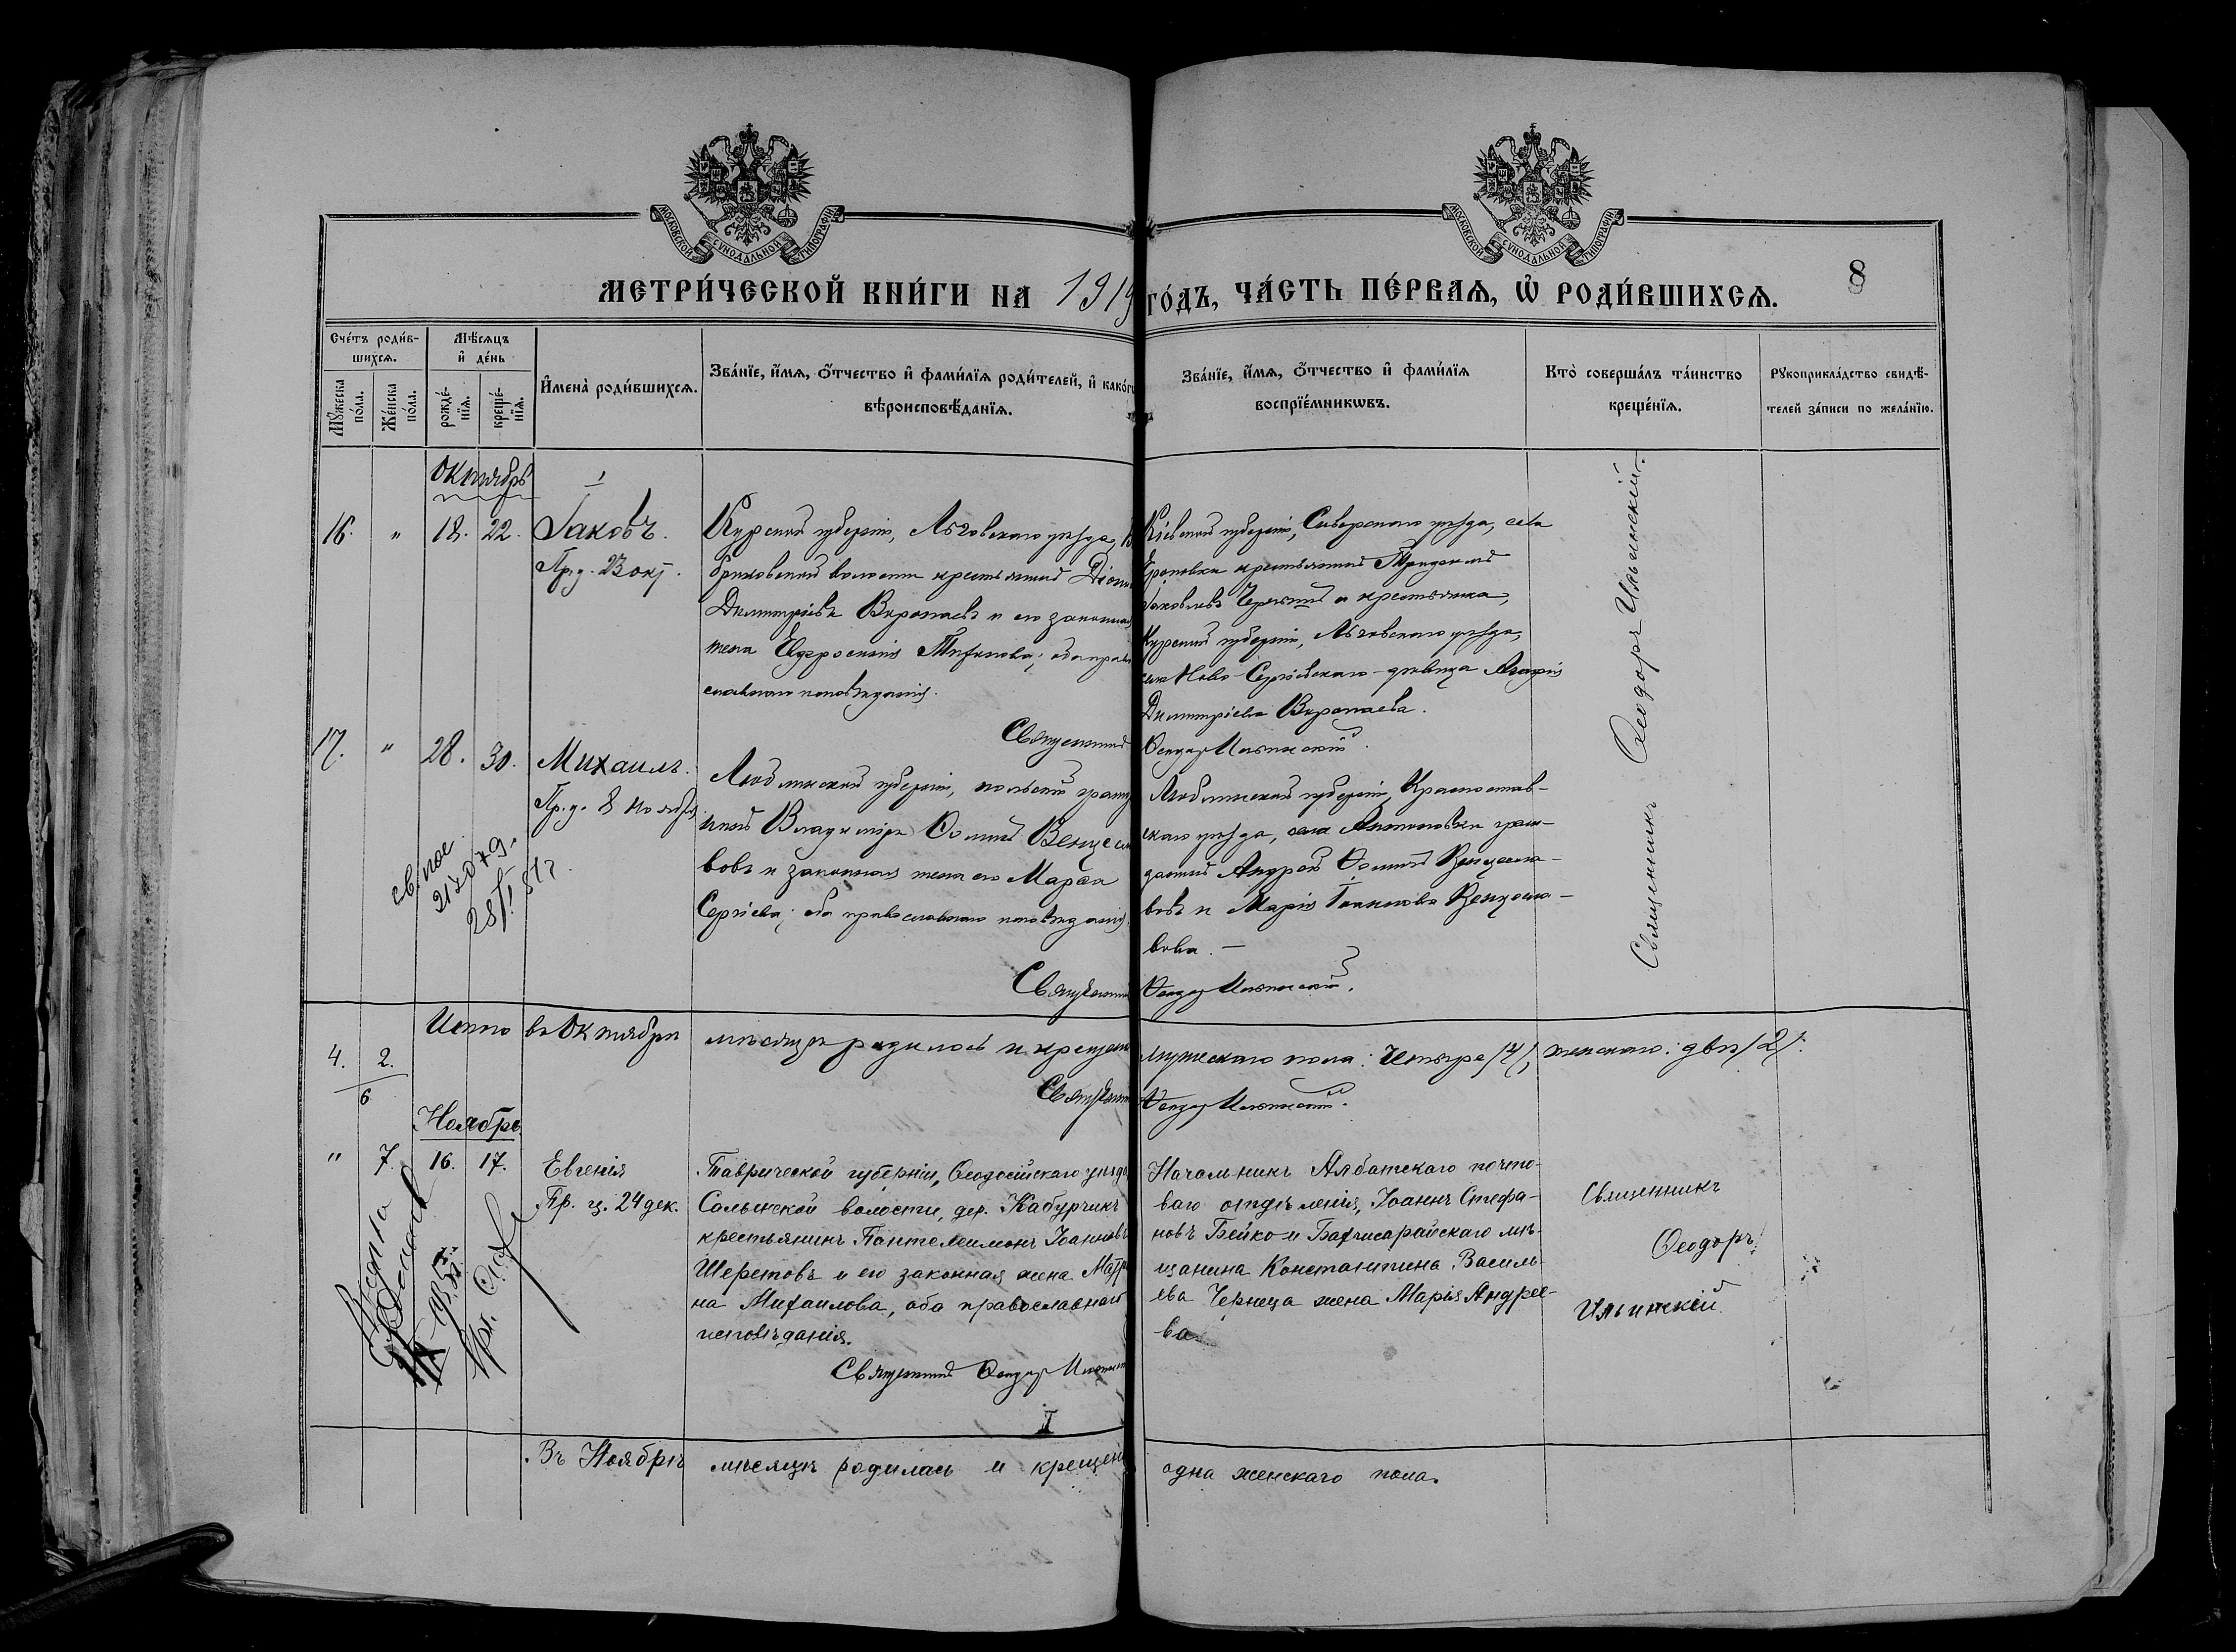 МОСКОВСКОЙ СѴНОДАЛЬНОЙ ТИПОГРАФІИ
МОСКОВСКОЙ СѴНОДАЛЬНОЙ ТИПОГРАФІИ
МЕТРИ́ЧЕСКОЙ КНИ́ГИ НА 1919 ГО́ДЪ, ЧА́СТЬ ПЕ́РВАЯ, Ѡ҆ РОДИ́ВШИХСЯ.
8
Сче́тъ роди́в-
шихся.
Мꙋжеска по́ла.
Же́нска по́ла.
Мѣ́сяцъ
и҆ де́нь
рожде́-
нїя.
креще́-
нїя.
И҆мена̀ роди́вшихся.
Зва́нїе, и҆́мя, ѻ҆́тчество и҆ фами́лїя роди́телей, и҆ како́гѡ
вѣроисповѣ́данїя.
Зва́нїе, и҆́мя, ѻ҆́тчество и҆ фами́лїя
воспрїе́мникѡвъ.
Кто̀ соверша́лъ та́инство
креще́нїя.
Рꙋкоприкла́дство свидѣ́-
телей за́писи по жела́нїю.
Октябрь
16. " 18. 22. Іаковъ.
Пр. д. 23 окт.
Курской губерніи, Льговскаго уѣзда,
волости крестьянинъ
Димитріевъ Воропаевъ и его законная
жена Евфросинія; оба право-
славнаго исповѣданія.
Священникъ
Кіевской губерніи, уѣзда, села
крестьянинъ
Іаковлевъ и крестьянка,
Курской губерніи, Льговскаго уѣзда,
села Ново-Сергіевскаго - дѣвица
Димитріева Воропаева.
Ѳеодоръ Ильинскій.
Священникъ Ѳеодоръ Ильинскій.
17. " 28. 30. Михаилъ.
Пр. д. 8 ноября
28/I 51 г.
Люблинской губерніи, польскій гражда-
нинъ Владиміръ Ѳоминъ Венцесла-
вовъ и законная жена его Марѳа
Сергіева; оба православнаго исповѣданія.
Священникъ
Люблинской губерніи, Красностав-
скаго уѣзда, села Антоновки граж-
данинъ Андрей Ѳоминъ Венцесла-
вовъ и Марія Іоаннова Венцесла-
вова. —
Ѳеодоръ Ильинскій.
4. 2. Итого въ Октябрѣ мѣсяцѣ родилось и крещено мужескаго пола: четыре /4/, женскаго: двѣ /2/.
6
Священникъ Ѳеодоръ Ильинскій.
Ноябрь
" 7. 16. 17. Евгенія
Пр. ц. 24 дек.
Таврической губерніи, Ѳеодосійскаго уѣзда
Салынской волости, дер. Кабурчикъ
крестьянинъ Пантелеимонъ Іоанновъ
Шереметовъ и его законная жена Матро-
на Михаилова, оба православнаго
исповѣданія.
Священникъ Ѳеодоръ Ильинскій
Начальникъ Албатскаго почто-
ваго отдѣленія, Іоаннъ Стефа-
новъ Бейко и Бахчисарайскаго мѣ-
щанина Константина Василь-
ева Чернеца жена Марія Андрее-
ва.
Священникъ
Ѳеодоръ
Ильинскій
Въ Ноябрѣ мѣсяцѣ родилась и крещена одна женскаго пола.